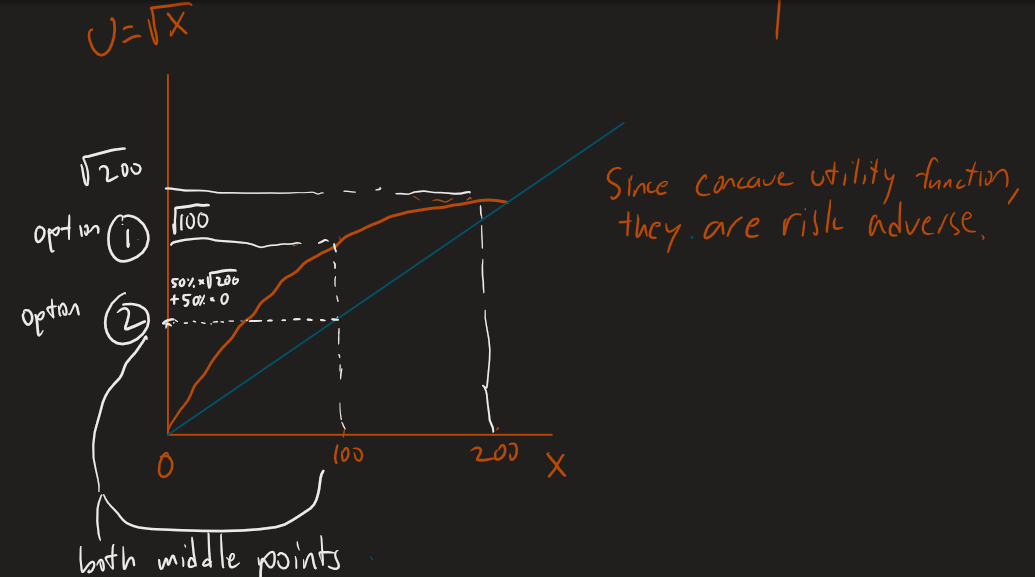 U=√X
√200
option ① √100
50%×√200
+50%×0
option ②
0 100 200 X
both middle points
Since concave utility function,
they are risk adverse.